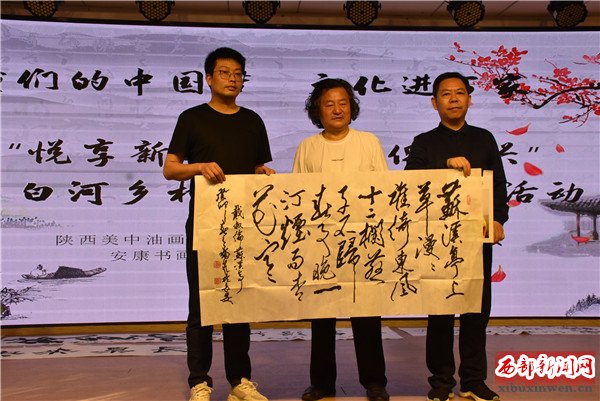 们的中国 文化进 家
"悦享新
白河乡村 活动
陕西美中油画
安康书画
蘇溪亭上
草漫漫
誰倚東風
十二欄燕
子不歸
春事晚一
汀煙雨杏
花寒
戴叔倫蘇溪亭
西部新闻网
xibuxinwen.cn